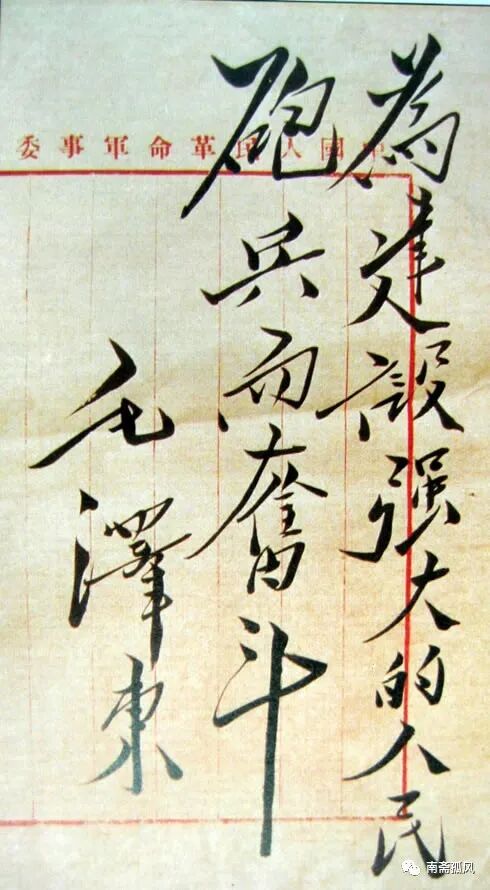 中國人民革命軍事委
為建設强大的人民
砲兵而奮斗
毛澤東
南斋孤风